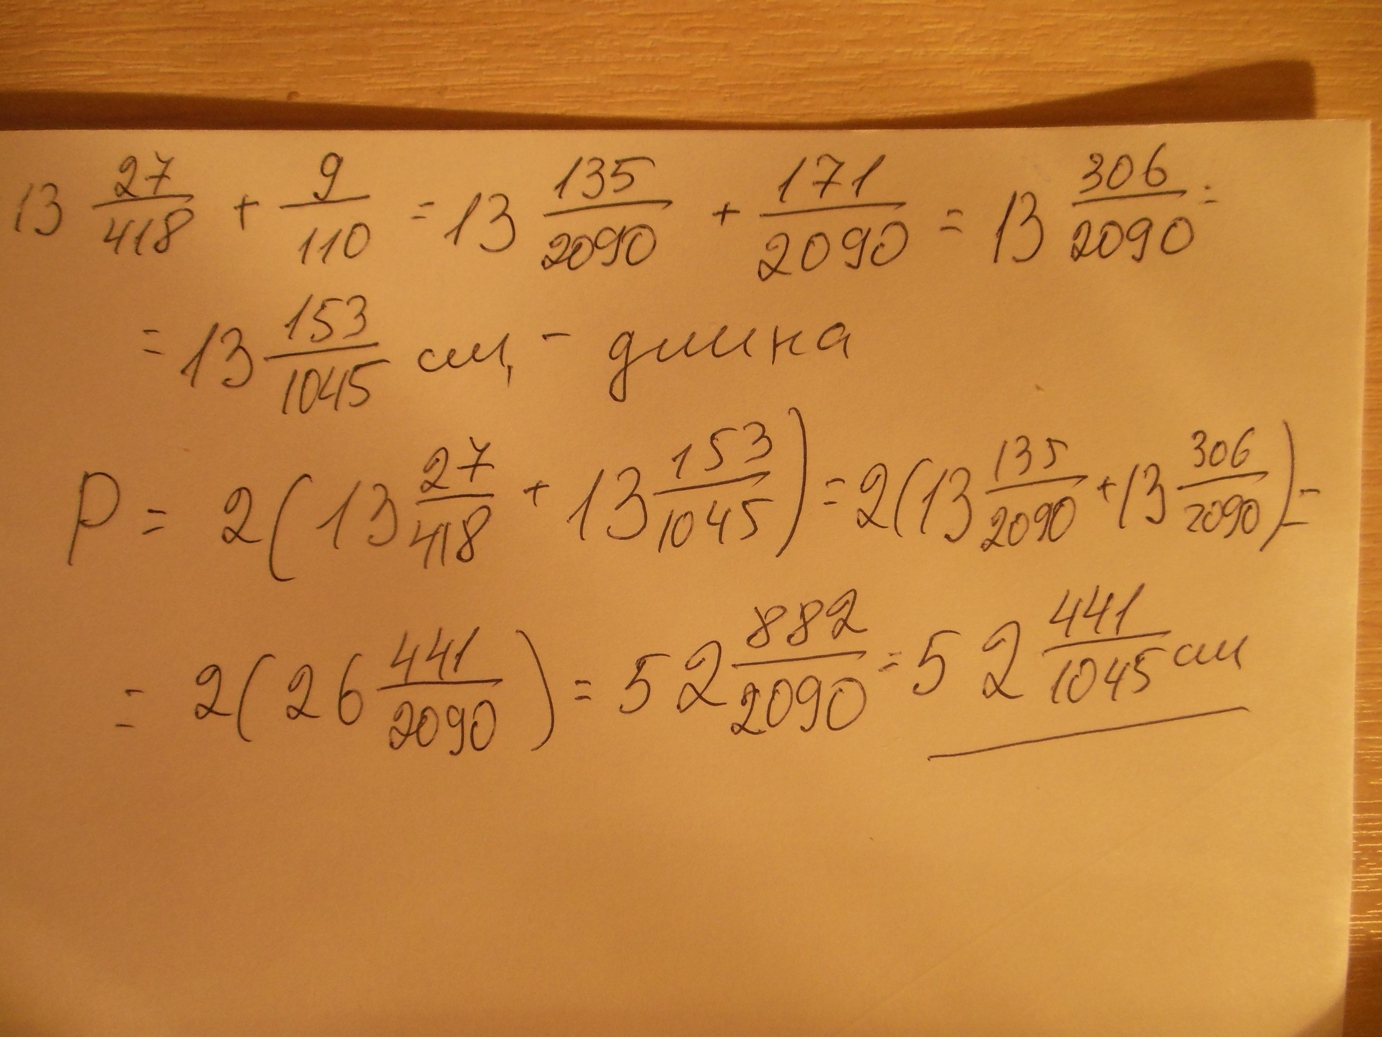 13 27/418 + 9/110 = 13 135/2090 + 171/2090 = 13 306/2090 =
= 13 153/1045 см, - длина
P = 2(13 27/418 + 13 153/1045) = 2(13 135/2090 + 13 306/2090) =
= 2(26 441/2090) = 52 882/2090 = 52 441/1045 см